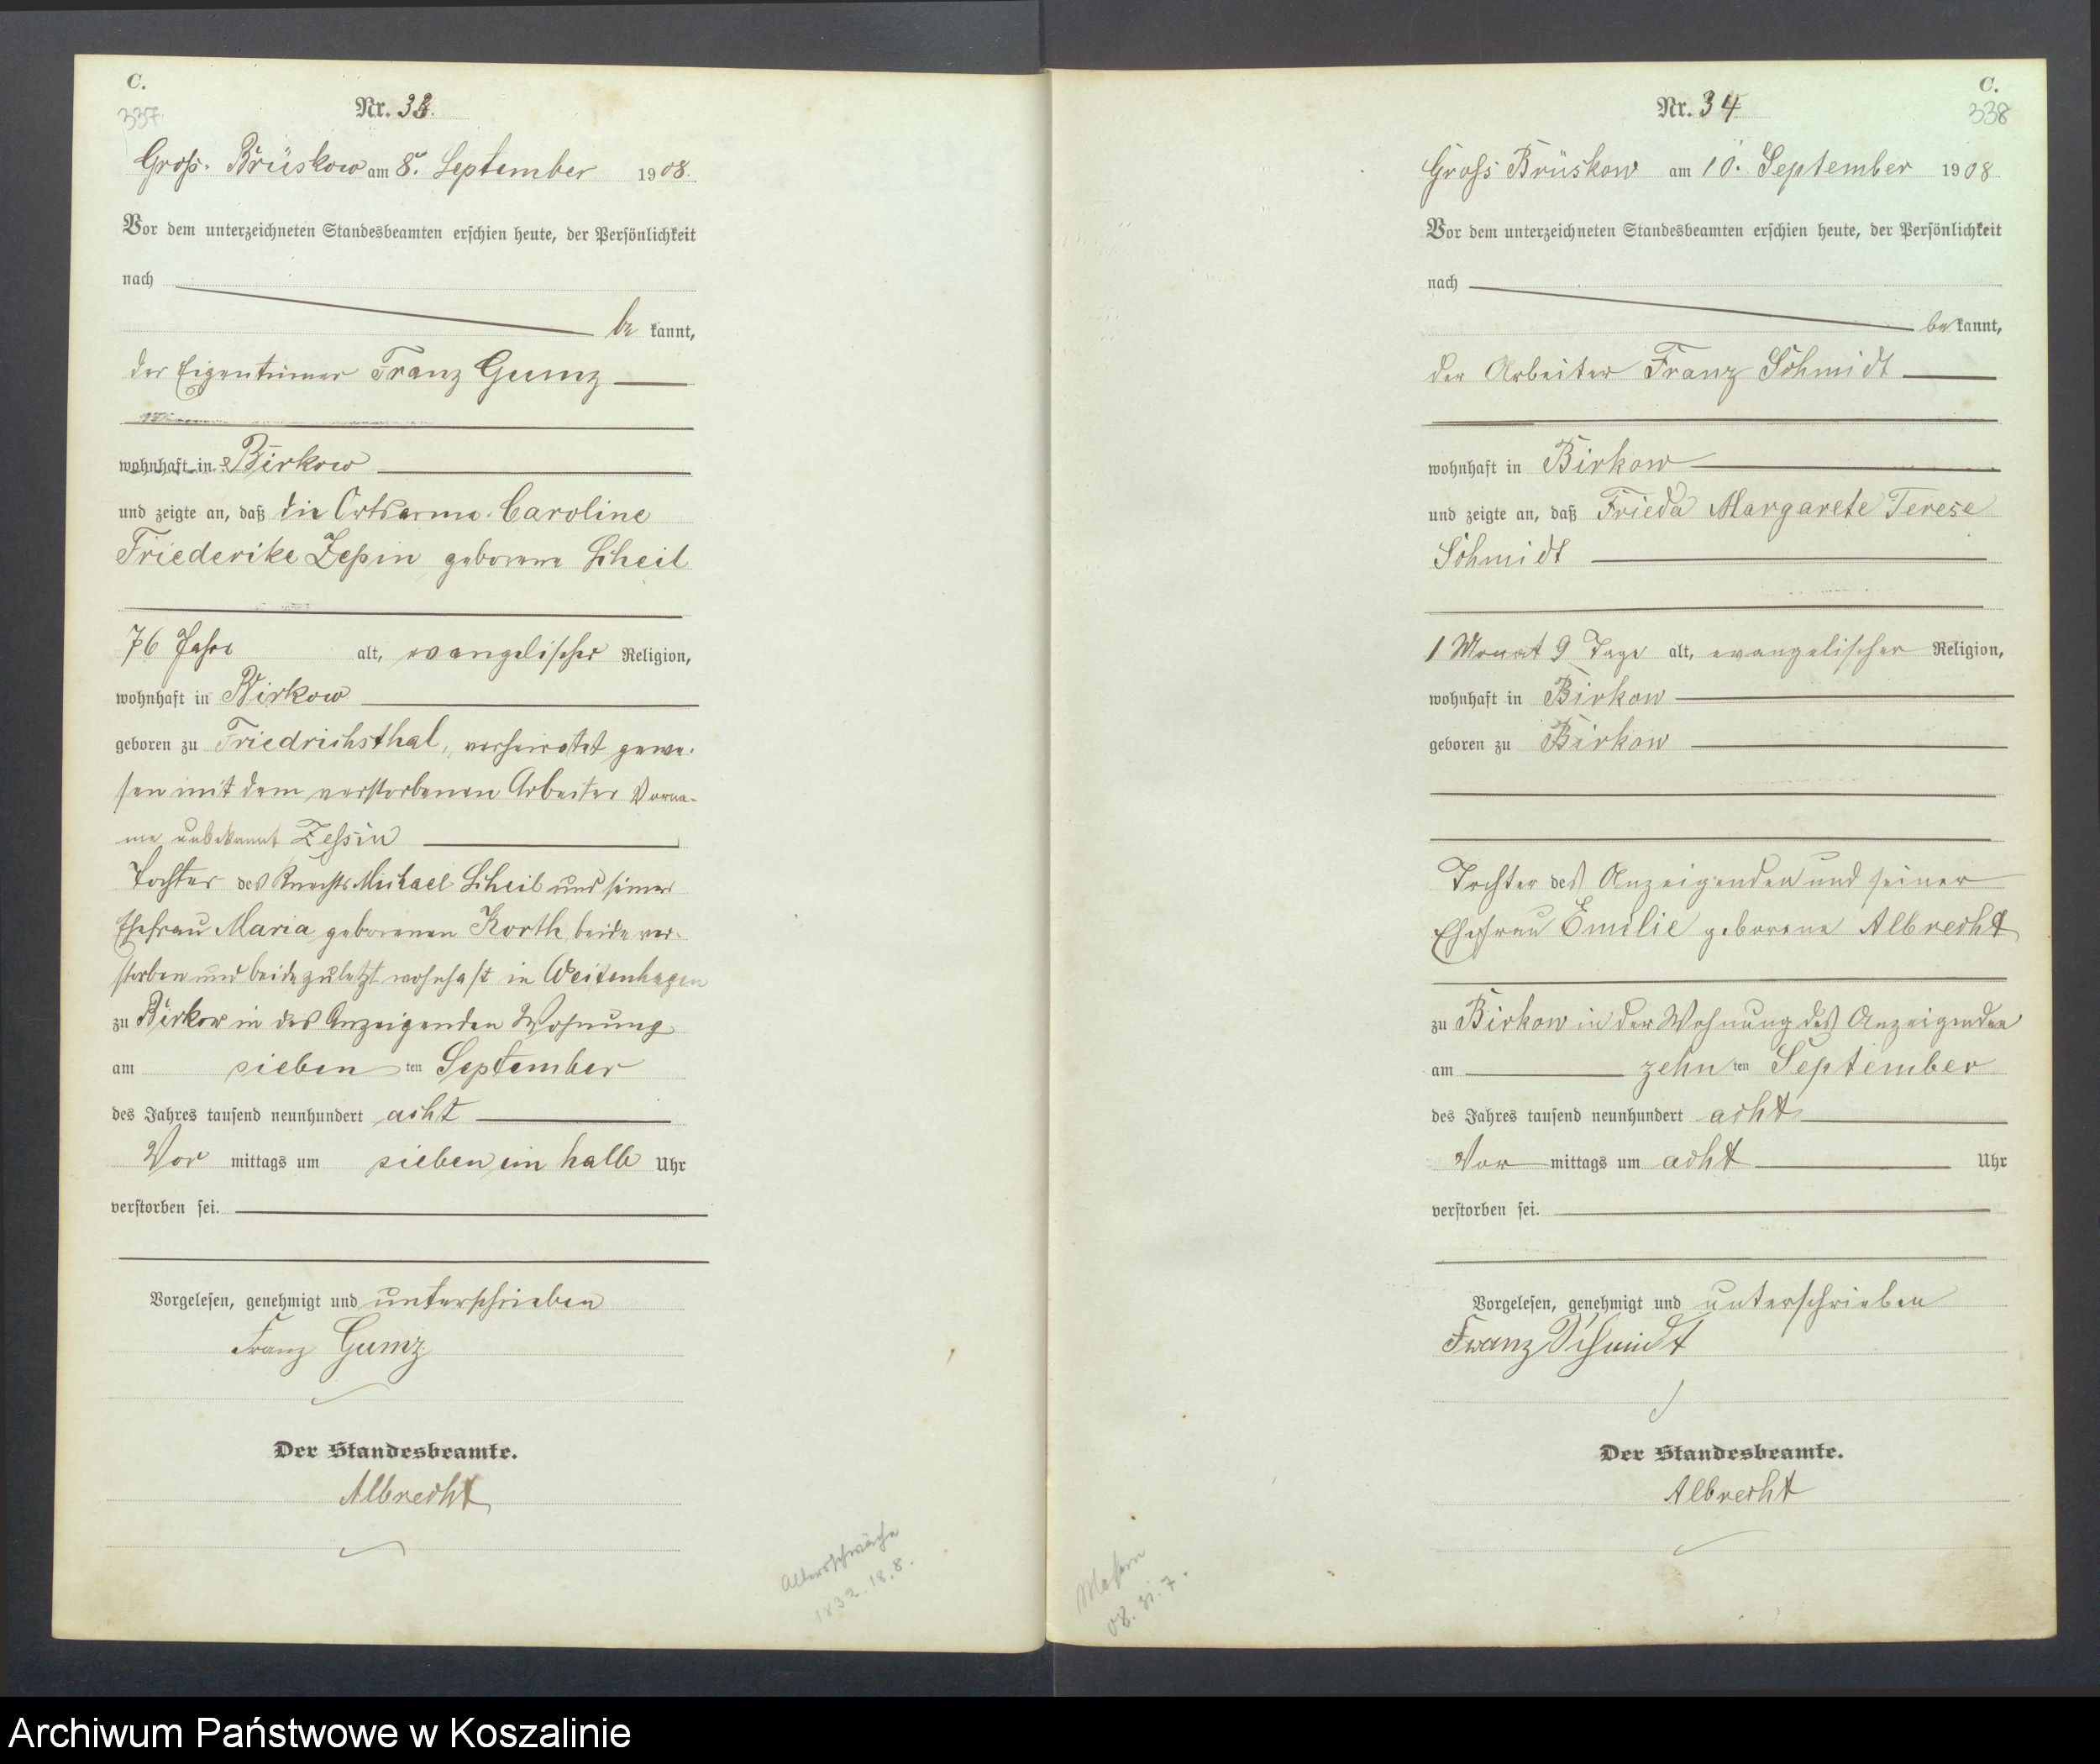 C.
337.
Nr. 33.
Groß-Brüskow am 8. September 1908.
Vor dem unterzeichneten Standesbeamten erschien heute, der Persönlichkeit
nach
be kannt,
der Eigentümer Franz Gumz
wohnhaft in Birkow
und zeigte an, daß die Ortsarme Caroline
Friederike Zeßin geborene Scheil
76 Jahre alt, evangelischer Religion,
wohnhaft in Birkow
geboren zu Friedrichsthal, verheiratet gewe-
sen mit dem verstorbenen Arbeiter Vorna-
me unbekannt Zeßin
Tochter des Knechts Michael Scheil und seiner
Ehefrau Maria geborenen Korth, beide ver-
storben und beide zuletzt wohnhaft in Weitenhagen
zu Birkow in des Anzeigenden Wohnung
am sieben ten September
des Jahres tausend neunhundert acht
Vor mittags um sieben ein halb Uhr
verstorben sei.
Vorgelesen, genehmigt und unterschrieben
Franz Gumz
Der Standesbeamte.
Albrecht
Altersschwäche
1832. 18. 8.
C.
338
Nr. 34
Groß Brüskow am 10. September 1908.
Vor dem unterzeichneten Standesbeamten erschien heute, der Persönlichkeit
nach
be kannt,
der Arbeiter Franz Schmidt
wohnhaft in Birkow
und zeigte an, daß Frieda Margarete Terese
Schmidt
1 Monat 9 Tage alt, evangelischer Religion,
wohnhaft in Birkow
geboren zu Birkow
Tochter des Anzeigenden und seiner
Ehefrau Emilie geborene Albrecht
zu Birkow in der Wohnung des Anzeigenden
am zehn ten September
des Jahres tausend neunhundert acht
Vor mittags um acht Uhr
verstorben sei.
Vorgelesen, genehmigt und unterschrieben
Franz Schmidt
Der Standesbeamte.
Albrecht
Masern
08. 31. 7.
Archiwum Państwowe w Koszalinie